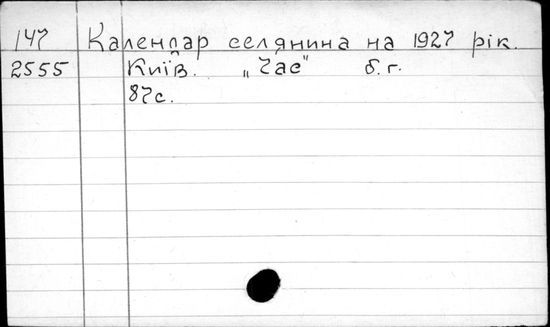 147 Календар селянина на 1927 рік.
2555 Київ. „Час" б.г.
87с.